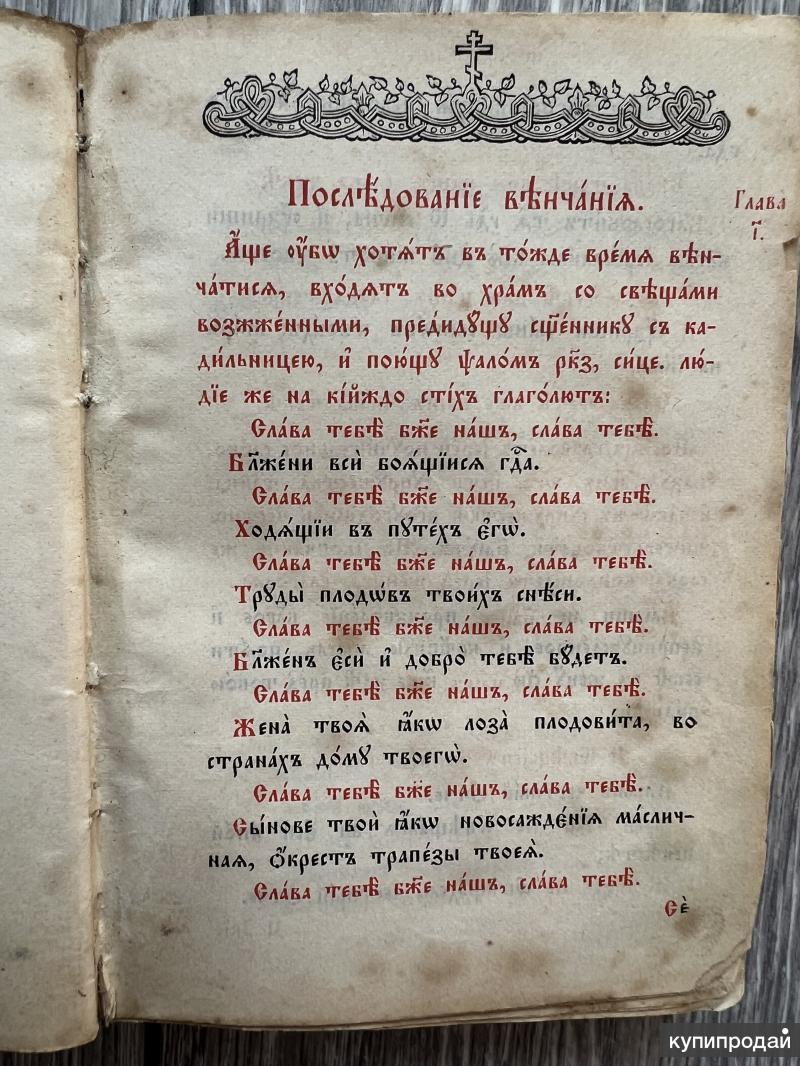 Послѣ́дованїе вѣнча́нїѧ.
Глава̀
і҃.
А҆́ще ᲂу҆́бѡ хотѧ́тъ въ то́жде врє́мѧ вѣн-
ча́тисѧ, вхо́дѧтъ во хра́мъ со свѣща́ми
возжже́нными, пред̾иду́щꙋ сщ҃е́нникꙋ съ ка-
ди́льницею, и҆ пою́щꙋ ѱало́мъ рк҃з, си́це. лю́-
дїе же на кі́йждо сті́хъ глаго́лютъ:
Сла́ва тебѣ̀ бж҃е на́шъ, сла́ва тебѣ̀.
Бл҃же́ни всѝ боѧ́щїисѧ гд҇а.
Сла́ва тебѣ̀ бж҃е на́шъ, сла́ва тебѣ̀.
Ходѧ́щїи въ пꙋте́хъ є҆гѡ̀.
Сла́ва тебѣ̀ бж҃е на́шъ, сла́ва тебѣ̀.
Трꙋды̀ плодѡ́въ твои́хъ снѣ́си.
Сла́ва тебѣ̀ бж҃е на́шъ, сла́ва тебѣ̀.
Бл҃же́нъ є҆сѝ и҆ добро̀ тебѣ̀ бꙋ́детъ.
Сла́ва тебѣ̀ бж҃е на́шъ, сла́ва тебѣ̀.
Жена̀ твоѧ̀ ꙗ҆́кѡ лоза̀ плодови́та, во
страна́хъ до́мꙋ твоегѡ̀.
Сла́ва тебѣ̀ бж҃е на́шъ, сла́ва тебѣ̀.
Сы́нове твоѝ ꙗ҆́кѡ новосажде́нїѧ ма́слич-
наѧ, ѻ҆́крестъ трапе́зы твоеѧ̀.
Сла́ва тебѣ̀ бж҃е на́шъ, сла́ва тебѣ̀.
Сѐ
купипродай